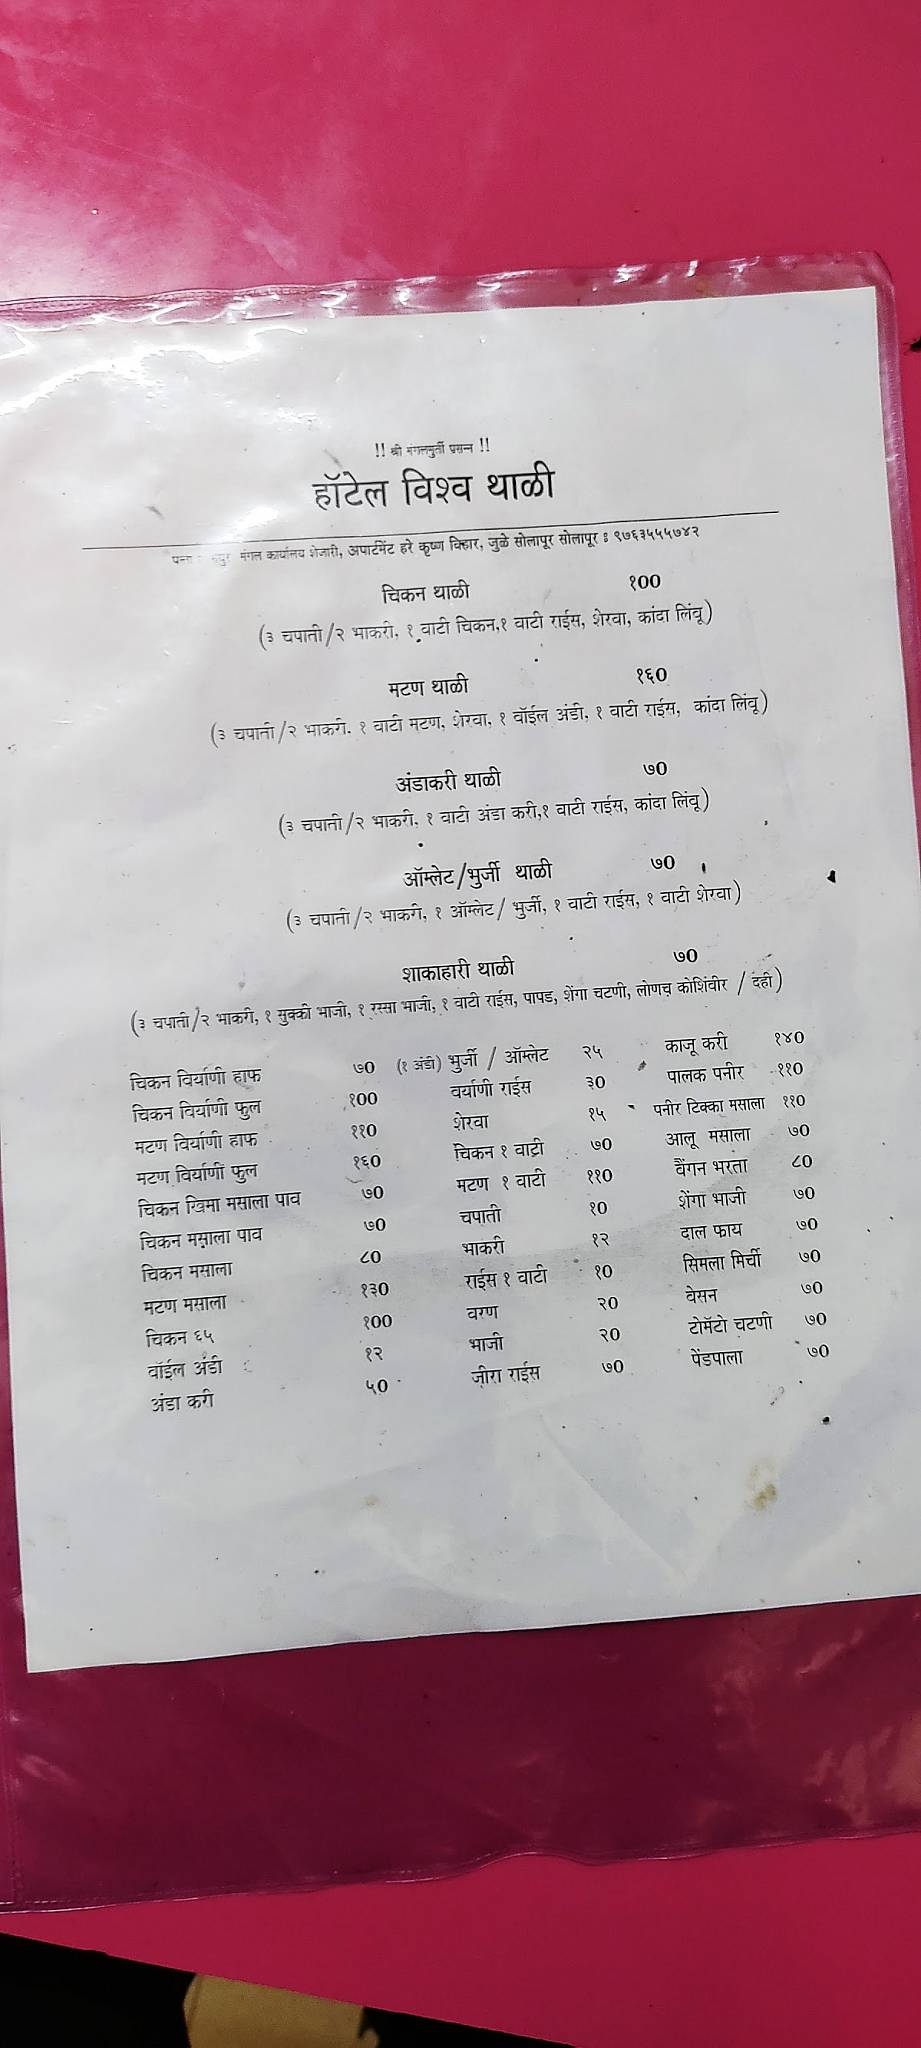 !! श्री मंगलमुर्ती प्रसन्न !!
हॉटेल विश्व थाळी
मंगल कार्यालय शेजारी, अपार्टमेंट हरे कृष्ण विहार, जुळे सोलापूर सोलापूर : ९७६३५५५७४२
चिकन थाळी १००
(३ चपाती/२ भाकरी, १ वाटी चिकन,१ वाटी राईस, शेरवा, कांदा लिंवू)
मटण थाळी १६०
(३ चपाती/२ भाकरी. १ वाटी मटण, शेरवा, १ वॉईल अंडी, १ वाटी राईस, कांदा लिंवू)
अंडाकरी थाळी ७०
(३ चपाती/२ भाकरी, १ वाटी अंडा करी,१ वाटी राईस, कांदा लिंवू)
ऑम्लेट/भुर्जी थाळी ७०
(३ चपाती/२ भाकरी, १ ऑम्लेट/ भुर्जी, १ वाटी राईस, १ वाटी शेरवा)
शाकाहारी थाळी ७०
(३ चपाती/२ भाकरी, १ सुक्की भाजी, १ रस्सा भाजी, १ वाटी राईस, पापड, शेंगा चटणी, लोणच कोशिंवीर / दही)
चिकन विर्याणी हाफ ७०
चिकन विर्याणी फुल १००
मटण विर्याणी हाफ ११०
मटण विर्याणी फुल १६०
चिकन खिमा मसाला पाव ७०
चिकन मसाला पाव ७०
चिकन मसाला ८०
मटण मसाला १३०
चिकन ६५ १००
वॉईल अंडी १२
अंडा करी ५०
(१ अंडी) भुर्जी / ऑम्लेट २५
वर्याणी राईस ३०
शेरवा १५
चिकन १ वाटी ७०
मटण १ वाटी ११०
चपाती १०
भाकरी १२
राईस १ वाटी १०
वरण २०
भाजी २०
जीरा राईस ७०
काजू करी १४०
पालक पनीर ११०
पनीर टिक्का मसाला ११०
आलू मसाला ७०
वैंगन भरता ८०
शेंगा भाजी ७०
दाल फ्राय ७०
सिमला मिर्ची ७०
वेसन ७०
टोमॅटो चटणी ७०
पेंडपाला ७०